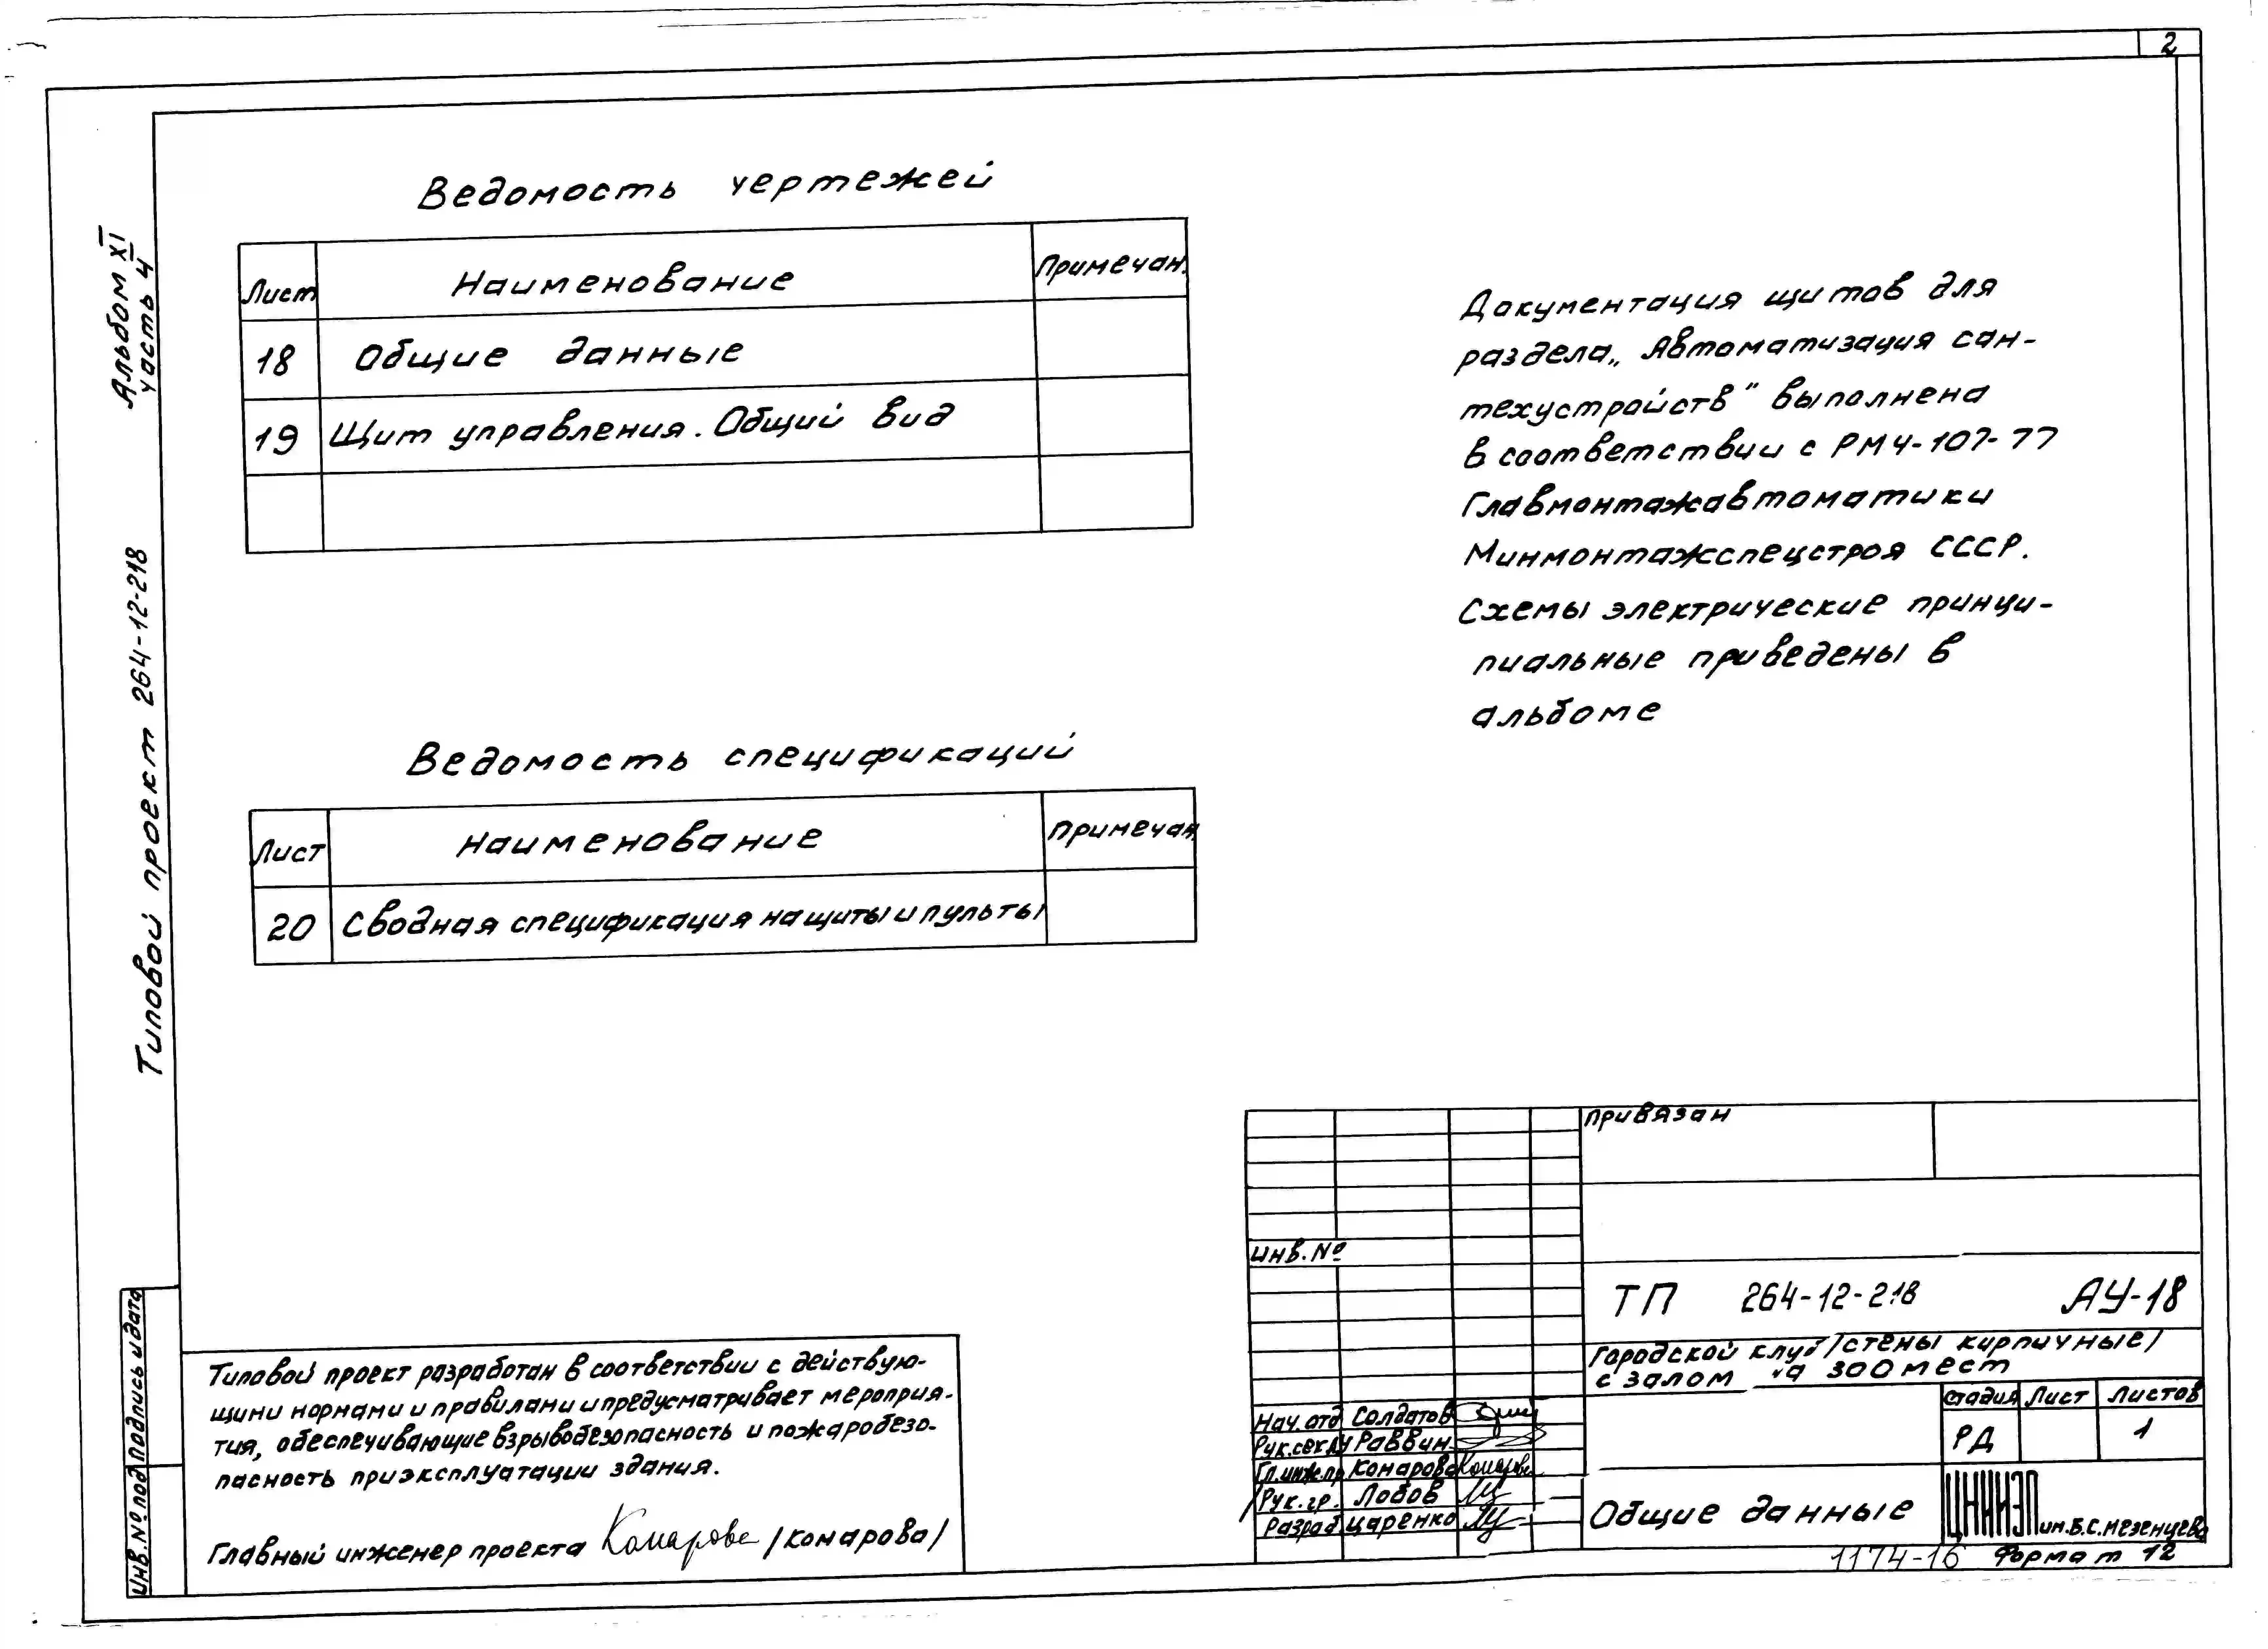 2
Альбом XI
часть 4
Типовой проект 264-12-218
Ведомость чертежей
Лист Наименование Примечан.
18 Общие данные
19 Щит управления. Общий вид
Ведомость спецификаций
Лист Наименование Примечан.
20 Сводная спецификация на щиты и пульты
Документация щитов для
раздела „Автоматизация сан-
техустройств" выполнена
в соответствии с РМ4-107-77
Главмонтажавтоматики
Минмонтажспецстроя СССР.
Схемы электрические принци-
пиальные приведены в
альбоме
Инв.№ подл Подпись и дата
Типовой проект разработан в соответствии с действую-
щими нормами и правилами и предусматривает мероприя-
тия, обеспечивающие взрывобезопасность и пожаробезо-
пасность при эксплуатации здания.
Главный инженер проекта Комарова /Комарова/
Привязан
Инв. №
ТП 264-12-218 АУ-18
Городской клуб /стены кирпичные/
с залом на 300 мест
Нач. отд Солдатов
Рук.сек АУ Раввин
Гл.инж.пр Комарова Комарова
Рук. гр. Лобов
Разраб Царенко
Стадия Лист Листов
РД 1
Общие данные
ЦНИИЭП им.Б.С.Мезенцева
1174-16 Формат 12